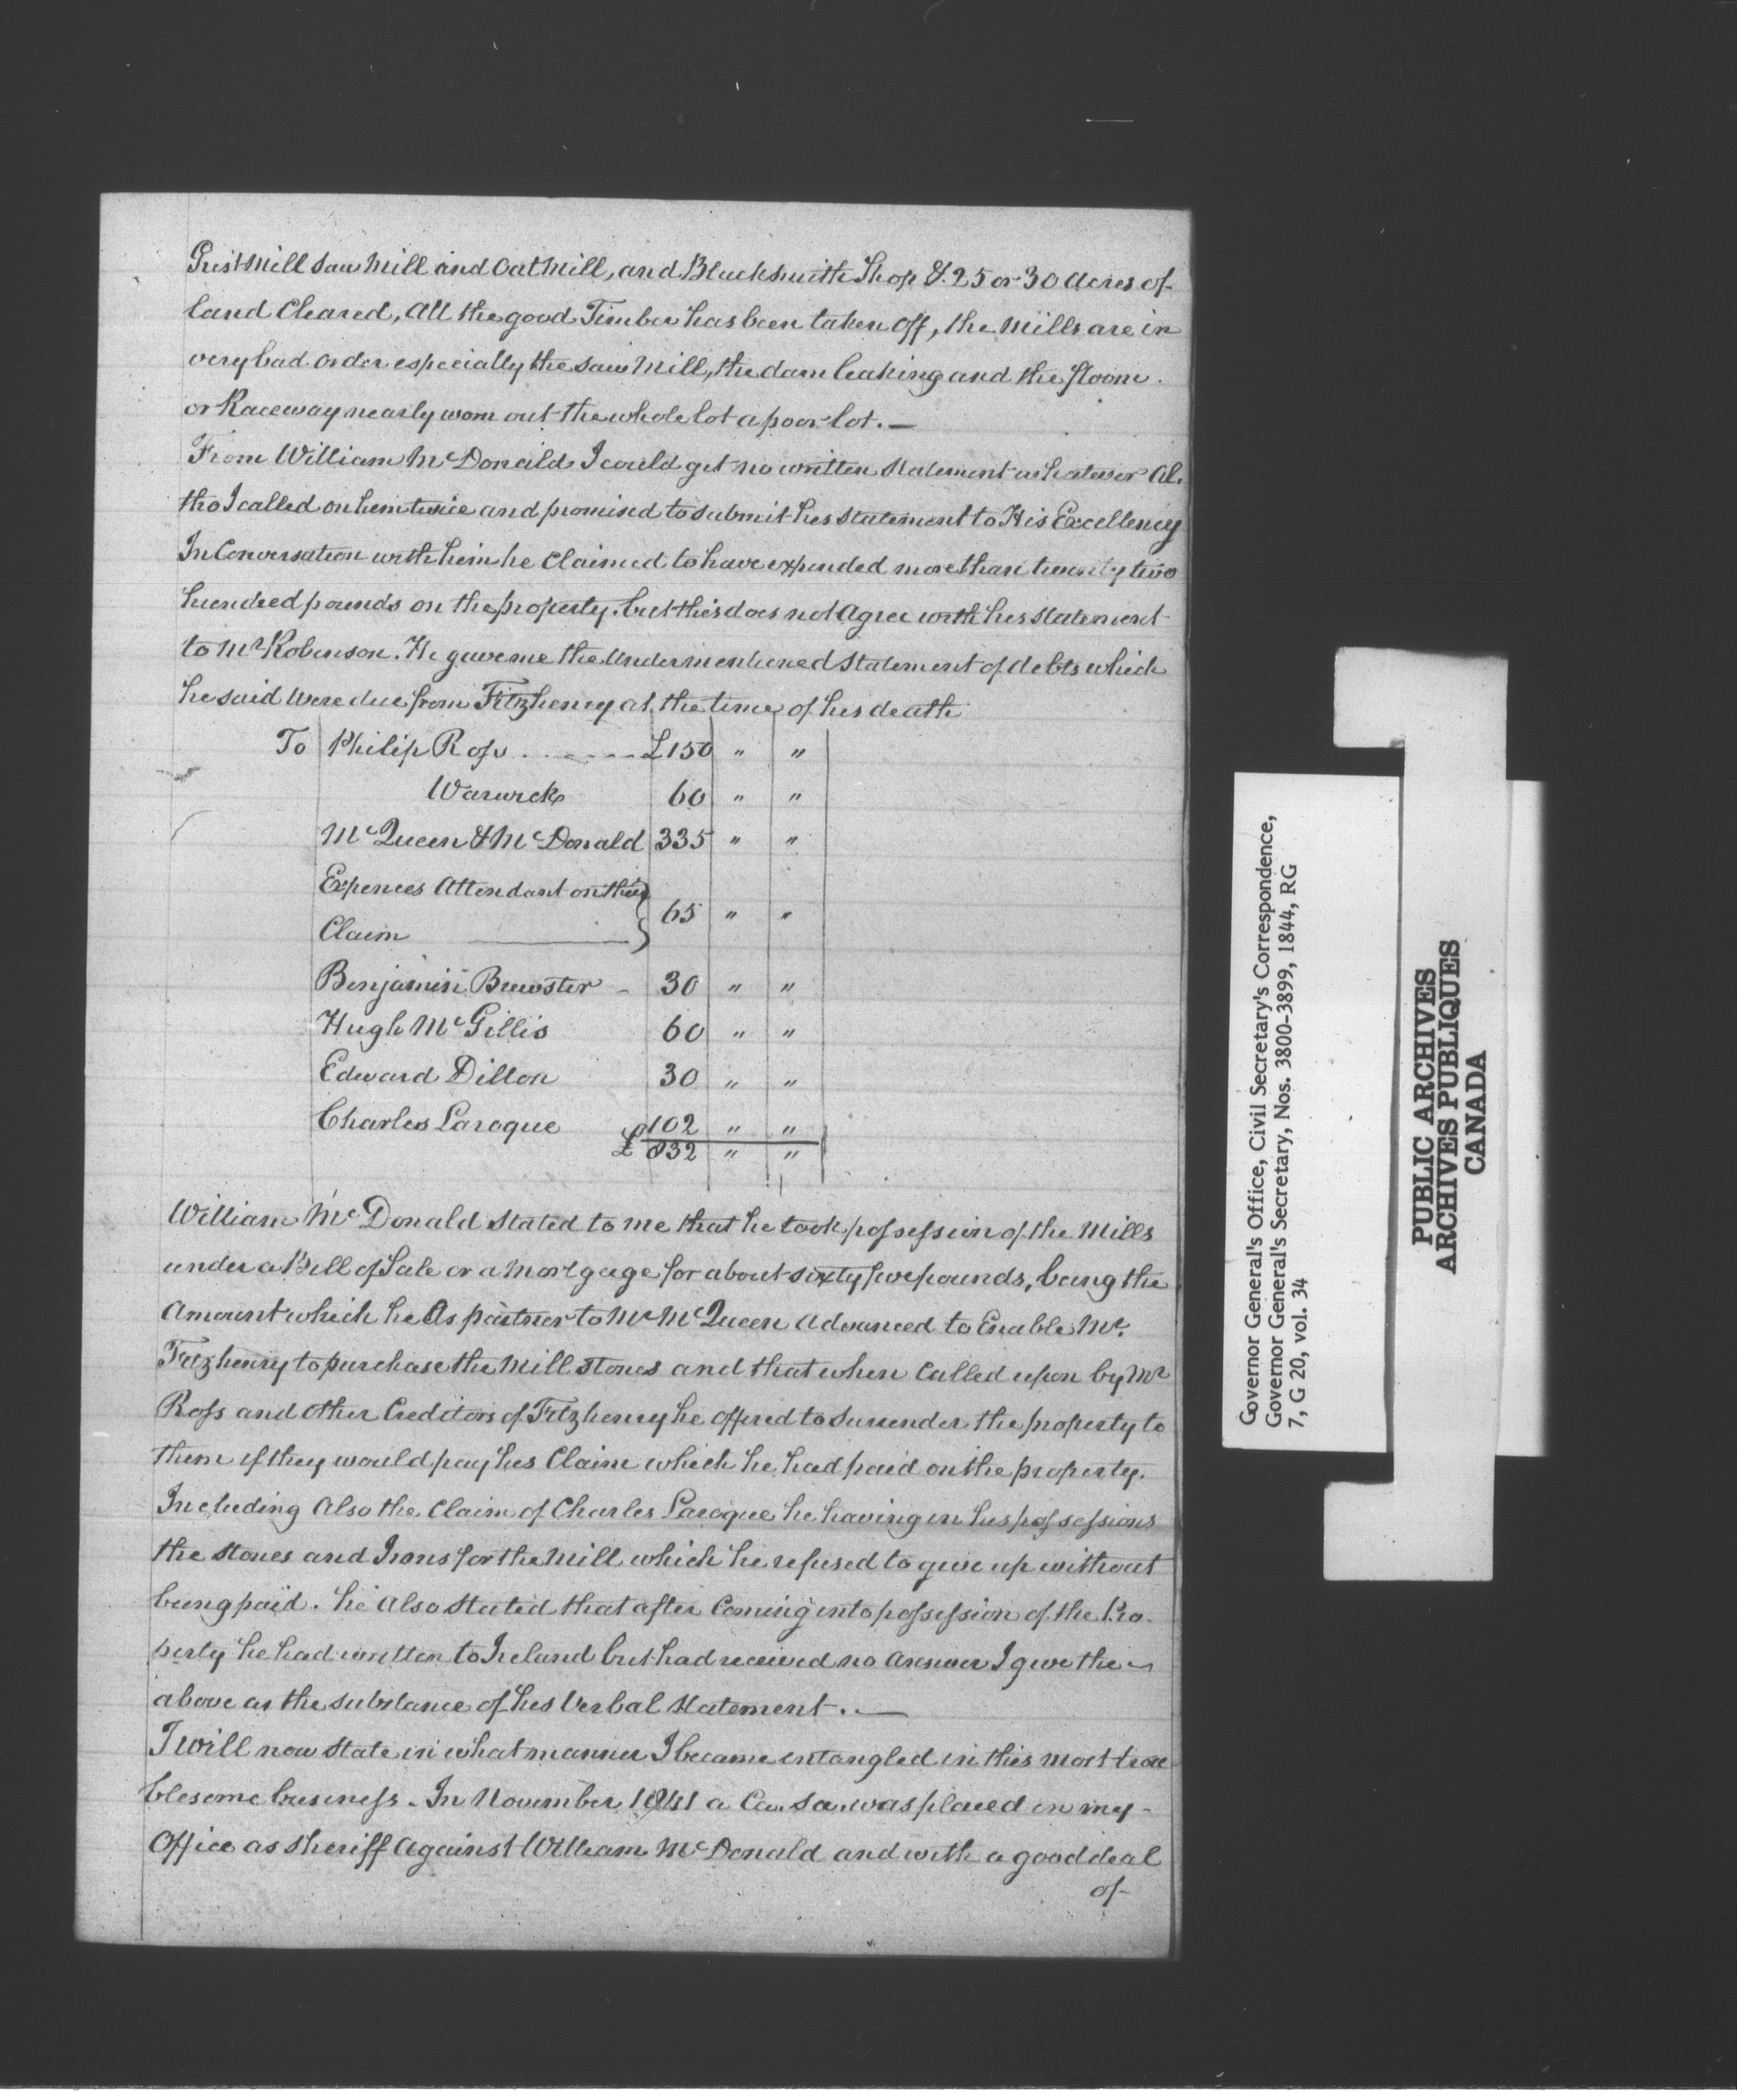 Grist Mill Saw Mill and Oat Mill, and Blacksmith Shop & 25 or 30 Acres of
land Cleared, All the good Timber has been taken off, the Mills are in
very bad order especially the Saw Mill, the dam leaking and the floom
or Raceway nearly worn out the whole lot a poor lot. —
From William McDonald I could get no written Statement whatever Al.
tho I called on him twice and promised to submit his Statement to His Excellency
In Conversation with him he Claimed to have expended more than twenty two
hundred pounds on the property. but this does not Agree with his Statement
to Mr Robinson. He gave me the Undermentioned Statement of debts which
he said Were due from Fitzhenry at the time of his death
To Philip Ross . - - - - £150 " "
Warwick 60 " "
McQueen & McDonald 335 " "
Expences Attendant on their }
Claim —— } 65 " "
Benjamin Brewster - 30 " "
Hugh McGillis 60 " "
Edward Dillon 30 " "
Charles Laroque 102 " "
£ 832 " "
William McDonald Stated to me that he took possession of the Mills
under a Bill of Sale or a Mortgage for about sixty five pounds, being the
Amount which he As partner to Mr McQueen Advanced to Enable Mr.
Fitzhenry to purchase the Mill Stones and that when Called upon by Mr
Ross and Other Creditors of Fitzhenry he Offered to Surrender the property to
them if they would pay his Claim which he had paid on the property.
Including Also the Claim of Charles Laroque he having in his possessions
the Stones and Irons for the Mill which he refused to give up without
being paid. he Also Stated that after Coming into possession of the Pro-
perty he had written to Ireland but had received no Answer I give the
above as the substance of his Verbal Statement. —
I will now State in what manner I became entangled in this most trou
blesome business - In November 1841 a Ca. Sa. was placed in my -
Office as Sheriff Against William McDonald and with a good deal
of
Governor General's Office, Civil Secretary's Correspondence,
Governor General's Secretary, Nos. 3800-3899, 1844, RG
7, G 20, vol. 34
PUBLIC ARCHIVES
ARCHIVES PUBLIQUES
CANADA